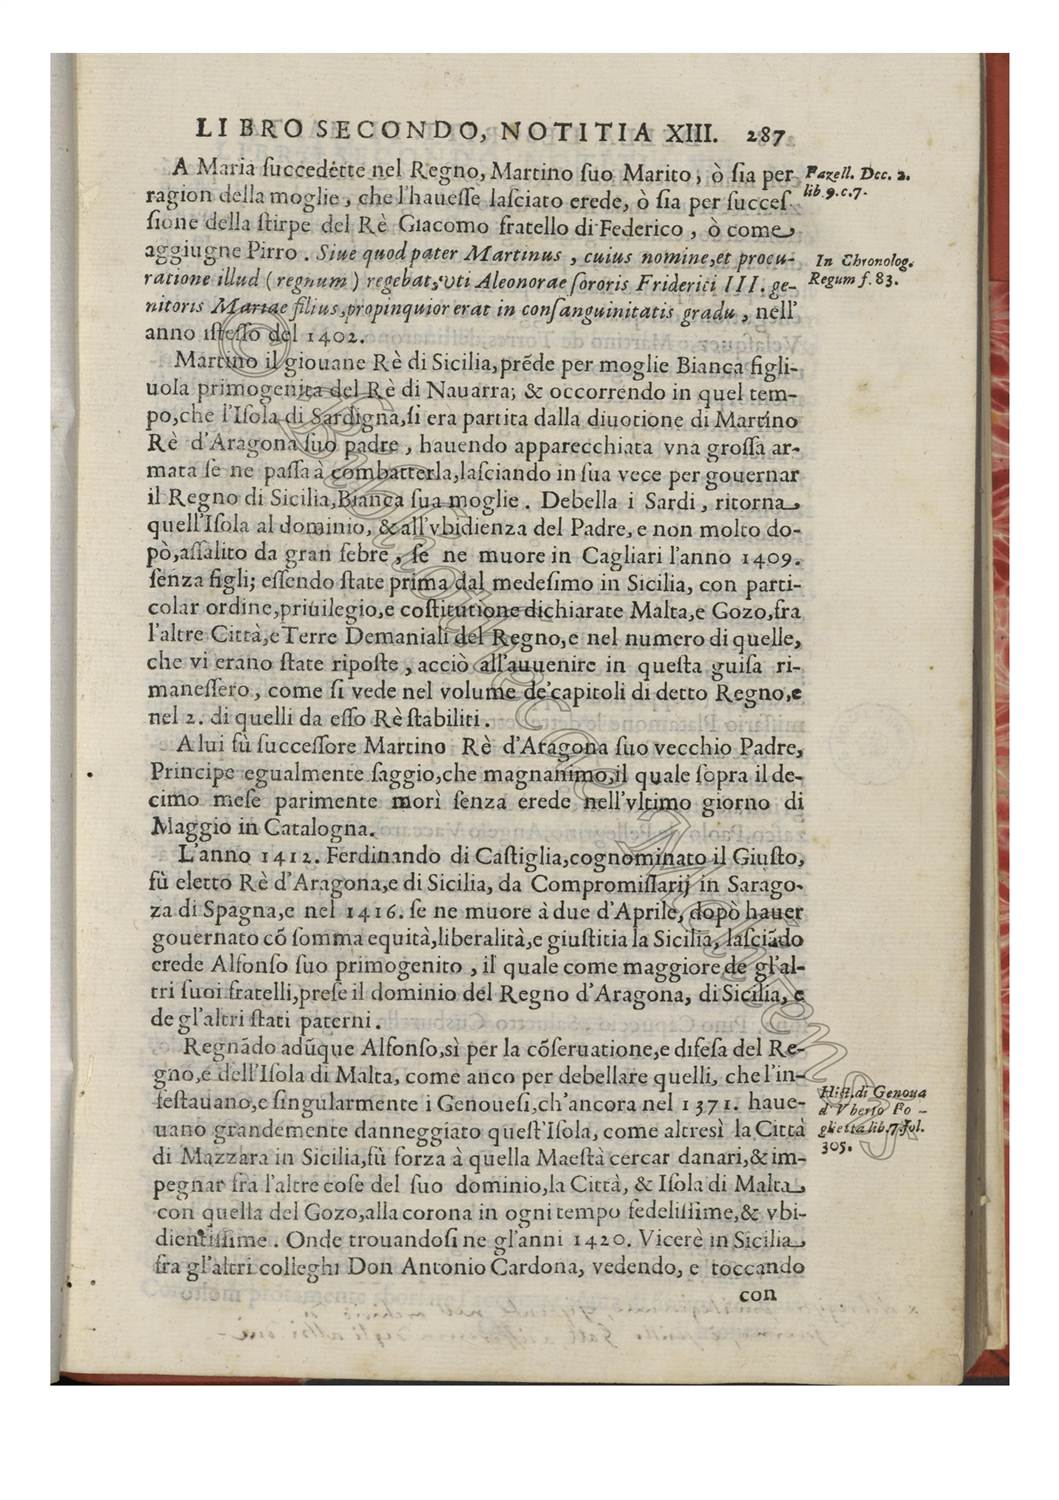 LIBRO SECONDO, NOTITIA XIII. 287
A Maria ſuccedétte nel Regno, Martino ſuo Marito, ò ſia per
ragion della moglie, che l'haueſſe laſciato erede, ò ſia per ſucceſ-
ſione della ſtirpe del Rè Giacomo fratello di Federico, ò come
aggiugne Pirro. Siue quod pater Martinus, cuius nomine, et procu-
ratione illud (regnum) regebat, vti Aleonorae ſororis Friderici III. ge-
nitoris Mariae filius, propinquior erat in conſanguinitatis gradu, nell'
anno iſteſſo del 1402.
Fazell. Dec. 2.
lib. 9. c. 7.
In Chronolog.
Regum f. 83.
Martino il giouane Rè di Sicilia, prẽde per moglie Bianca figli-
uola primogenita del Rè di Nauarra; & occorrendo in quel tem-
po, che l'Iſola di Sardigna, ſi era partita dalla diuotione di Martino
Rè d'Aragona ſuo padre, hauendo apparecchiata vna groſſa ar-
mata ſe ne paſſa à combatterla, laſciando in ſua vece per gouernar
il Regno di Sicilia, Bianca ſua moglie. Debella i Sardi, ritorna
quell'Iſola al dominio, & all'vbidienza del Padre, e non molto do-
pò, aſſalito da gran febre, ſe ne muore in Cagliari l'anno 1409.
ſenza figli; eſſendo ſtate prima dal medeſimo in Sicilia, con parti-
colar ordine, priuilegio, e coſtitutione dichiarate Malta, e Gozo, fra
l'altre Città, e Terre Demaniali del Regno, e nel numero di quelle,
che vi erano ſtate ripoſte, acciò all'auuenire in queſta guiſa ri-
maneſſero, come ſi vede nel volume de'capitoli di detto Regno, e
nel 2. di quelli da eſſo Rè ſtabiliti.
A lui fù ſucceſſore Martino Rè d'Aragona ſuo vecchio Padre,
Principe egualmente ſaggio, che magnanimo, il quale ſopra il de-
cimo meſe parimente morì ſenza erede nell'vltimo giorno di
Maggio in Catalogna.
L'anno 1412. Ferdinando di Caſtiglia, cognominato il Giuſto,
fù eletto Rè d'Aragona, e di Sicilia, da Compromiſſarij in Sarago-
za di Spagna, e nel 1416. ſe ne muore à due d'Aprile, dopò hauer
gouernato cõ ſomma equità, liberalità, e giuſtitia la Sicilia, laſciãdo
erede Alfonſo ſuo primogenito, il quale come maggiore de gl'al-
tri ſuoi fratelli, preſe il dominio del Regno d'Aragona, di Sicilia, e
de gl'altri ſtati paterni.
Regnãdo adũque Alfonſo, sì per la cõſeruatione, e difeſa del Re-
gno, e dell'Iſola di Malta, come anco per debellare quelli, che l'in-
feſtauano, e ſingularmente i Genoueſi, ch'ancora nel 1371. haue-
uano grandemente danneggiato queſt'Iſola, come altresì la Città
di Mazzara in Sicilia, fù forza à quella Maeſtà cercar danari, & im-
pegnar fra l'altre coſe del ſuo dominio, la Città, & Iſola di Malta
con quella del Gozo, alla corona in ogni tempo fedeliſſime, & vbi-
dientiſſime. Onde trouandoſi ne gl'anni 1420. Vicerè in Sicilia
fra gl'altri colleghi Don Antonio Cardona, vedendo, e toccando
con
Hiſt. di Genoua
d Vberto Fo-
glietta lib. 7. fol.
305.